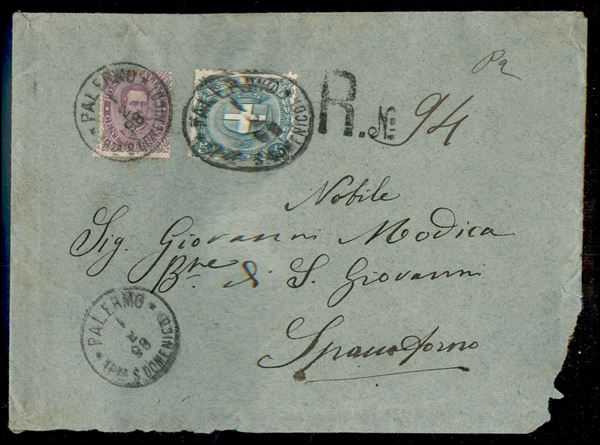 Pa
R. № 94
PALERMO
PALERMO
S. DOMENICO
Nobile
Sig. Giovanni Modica
Bne di S. Giovanni
Spaccaforno
PALERMO
S. DOMENICO